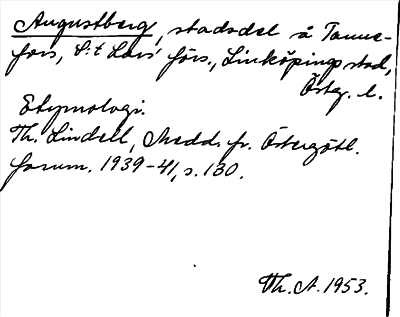 Augustberg, stadsdel å Tanne-
fors, S:t Lars'förs., Linköpings stad,
Östg. l.
Etymologi.
Th. Lindell, Medd. fr. Östergötl.
fornm. 1939-41, s. 130.
Th. A. 1953.